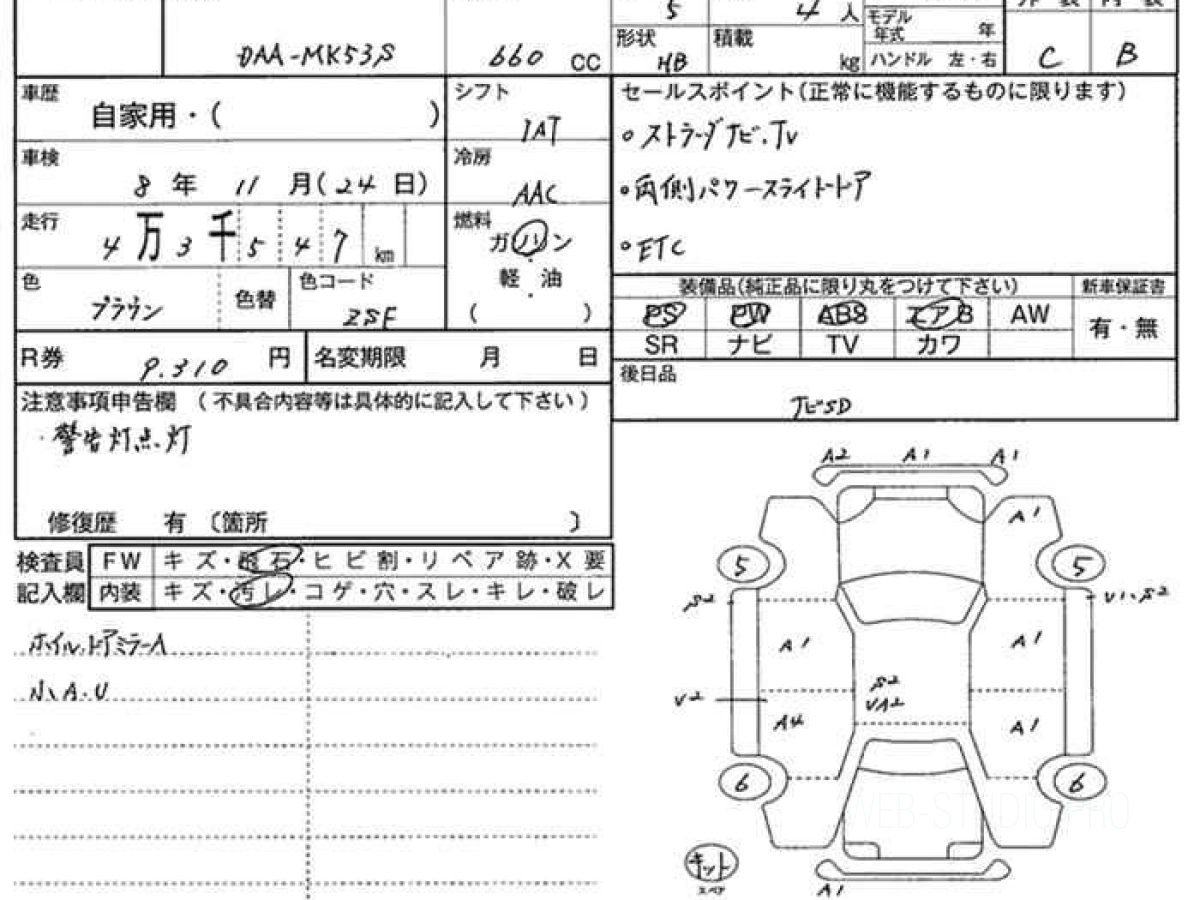 5
4 人
モデル年式 年
DAA-MK53S
660 CC
形状 HB
積載 kg
ハンドル 左・右
C
B
車歴 自家用・( )
シフト IAT
セールスポイント(正常に機能するものに限ります)
○ストラーダナビ.TV
車検 8 年 11 月(24 日)
冷房 AAC
○両側パワースライドドア
走行 4 万 3 千 5 4 7 km
燃料 ガソリン
軽油
( )
○ETC
色 ブラウン
色替
色コード ZSF
装備品(純正品に限り丸をつけて下さい)
新車保証書
PS PW ABS エアB AW
有・無
SR ナビ TV カワ
R券 9.310 円
名変期限 月 日
後日品
ナビSD
注意事項申告欄 (不具合内容等は具体的に記入して下さい)
・警告灯点灯
修復歴 有 〔箇所 〕
検査員記入欄
FW キズ・飛石・ヒビ割・リペア跡・X要
内装 キズ・汚レ・コゲ・穴・スレ・キレ・破レ
ホイル.ドアミラーA
小A.U
A2 A1 A1
A1
5 5
S2 V1.S2
A1 A1
S2
U2 VA2
A4 A1
6 6
WEB-STUDIO.PRO
キット
スペア
A1